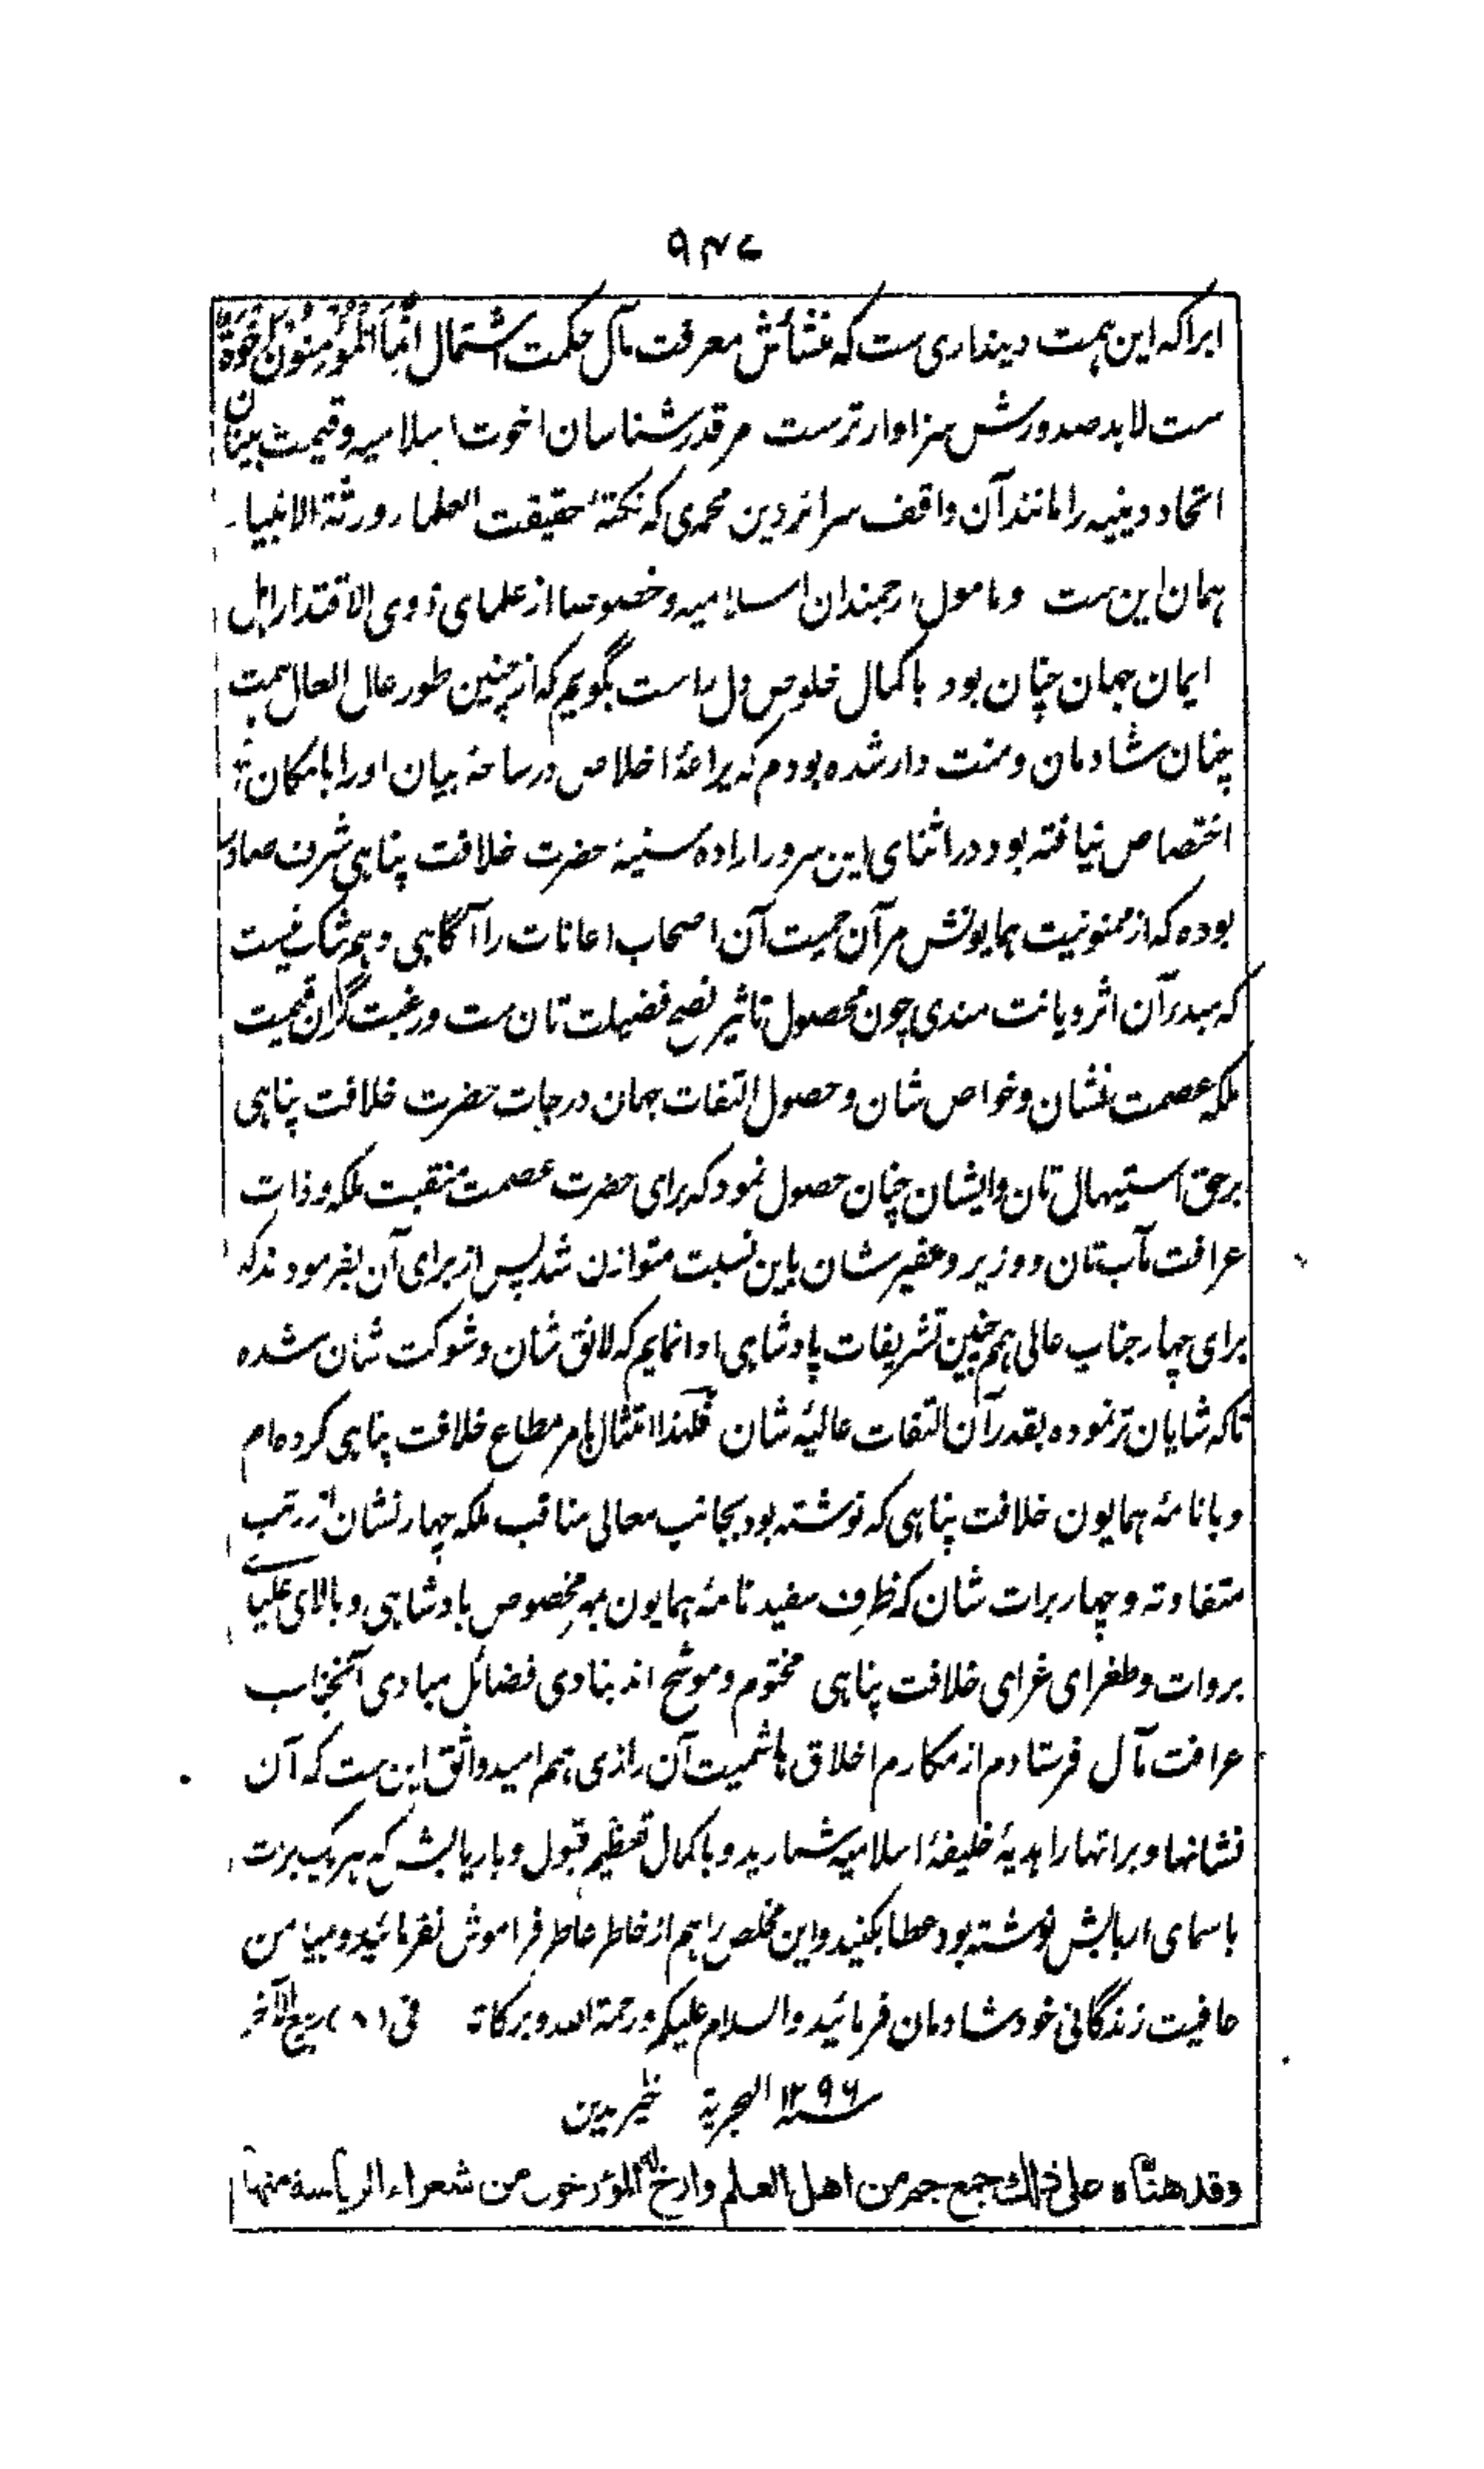 ٩٣٧
ابراکه این همت دینداری ست که منشأش معرفت مآل حکمت اشتمال اِنَّمَا الْمُؤْمِنُوْنَ اِخْوَةٌ
ست لابد صدورش سزاوارترست مر قدرشناسان اخوت اسلامیه وقیمت بینان
اتحاد دینیه را مانند آن واقف سرائر دین محمدی که نکتهٔ حقیقت العلماء ورثة الانبیاء
همان این ست ومامول ارجمندان اسلامیه وخصوصا از علمای ذوی الاقتدار اهل
ایمان همان چنان بود باکمال خلوص دل راست بگویم که از چنین طور عال العال همت
چنان شادمان ومنت دار شده بودم که یراعهٔ اخلاص درساحهٔ بیان اورا بامکان
اختصاص نیافته بود در اثنای این سرور ارادهٔ سنیهٔ حضرت خلافت پناهی شرف صادر
بوده که از ممنونیت همایونش مر آن حمیت آن اصحاب اعانات را آگاهی وهم شک نیست
که مبدر آن اثر دیانت مندی چون محصول تاثیر نصح فضیلت تان ست ورغبت گران قیمت
ملکه عصمت نشان وخواص شان وحصول التفات همان درجات حضرت خلافت پناهی
برحق استیهال تان وایشان چنان حصول نمود که برای حضرت عصمت منقبت ملکه وذات
عرافت مآب تان ووزیر وعفیرشان باین نسبت متوازن شد پس از برای آن بفرمودند که
برای چهار جناب عالی هم چنین تشریفات پادشاهی ادا نمایم که لائق شان وشوکت شان شده
تاکه شایان تر نموده بقدر آن التفات عالیهٔ شان فلهذا امتثال بامر مطاع خلافت پناهی کرده ام
وبا نامهٔ همایون خلافت پناهی که نوشته بود بجانب معالی مناقب ملکه چهار نشان از رتب
متفاوته وچهار برات شان که ظرف سفید نامهٔ همایون بمهر مخصوص بادشاهی وبالای علیای
بروات وطغرای غرای خلافت پناهی مختوم وموشح اند بنادی فضائل مبادی آنجناب
عرافت مآل فرستادم از مکارم اخلاق هاشمیت آن رازی هم امید واثق این ست که آن
نشانها وبراتها را هدیهٔ خلیفهٔ اسلامیه شمارید وباکمال تعظیم قبول وباربابش که بهریک برت
باسمای اربابش نوشته بود عطا بکنید واین مخلص را هم از خاطر عاطر فراموش نفرمائید ومیامن
عافیت زندگانی خود شادمان فرمائید والسلام علیکم ورحمة الله وبرکاته فی (٨) ربیع الآخر
سنه ١٢٩٦ الهجریة خیرالدین
وقد هنّأه علی ذلك جمع جم من اهل العلم وارخ له المؤرخون من شعراء الریاسة منها